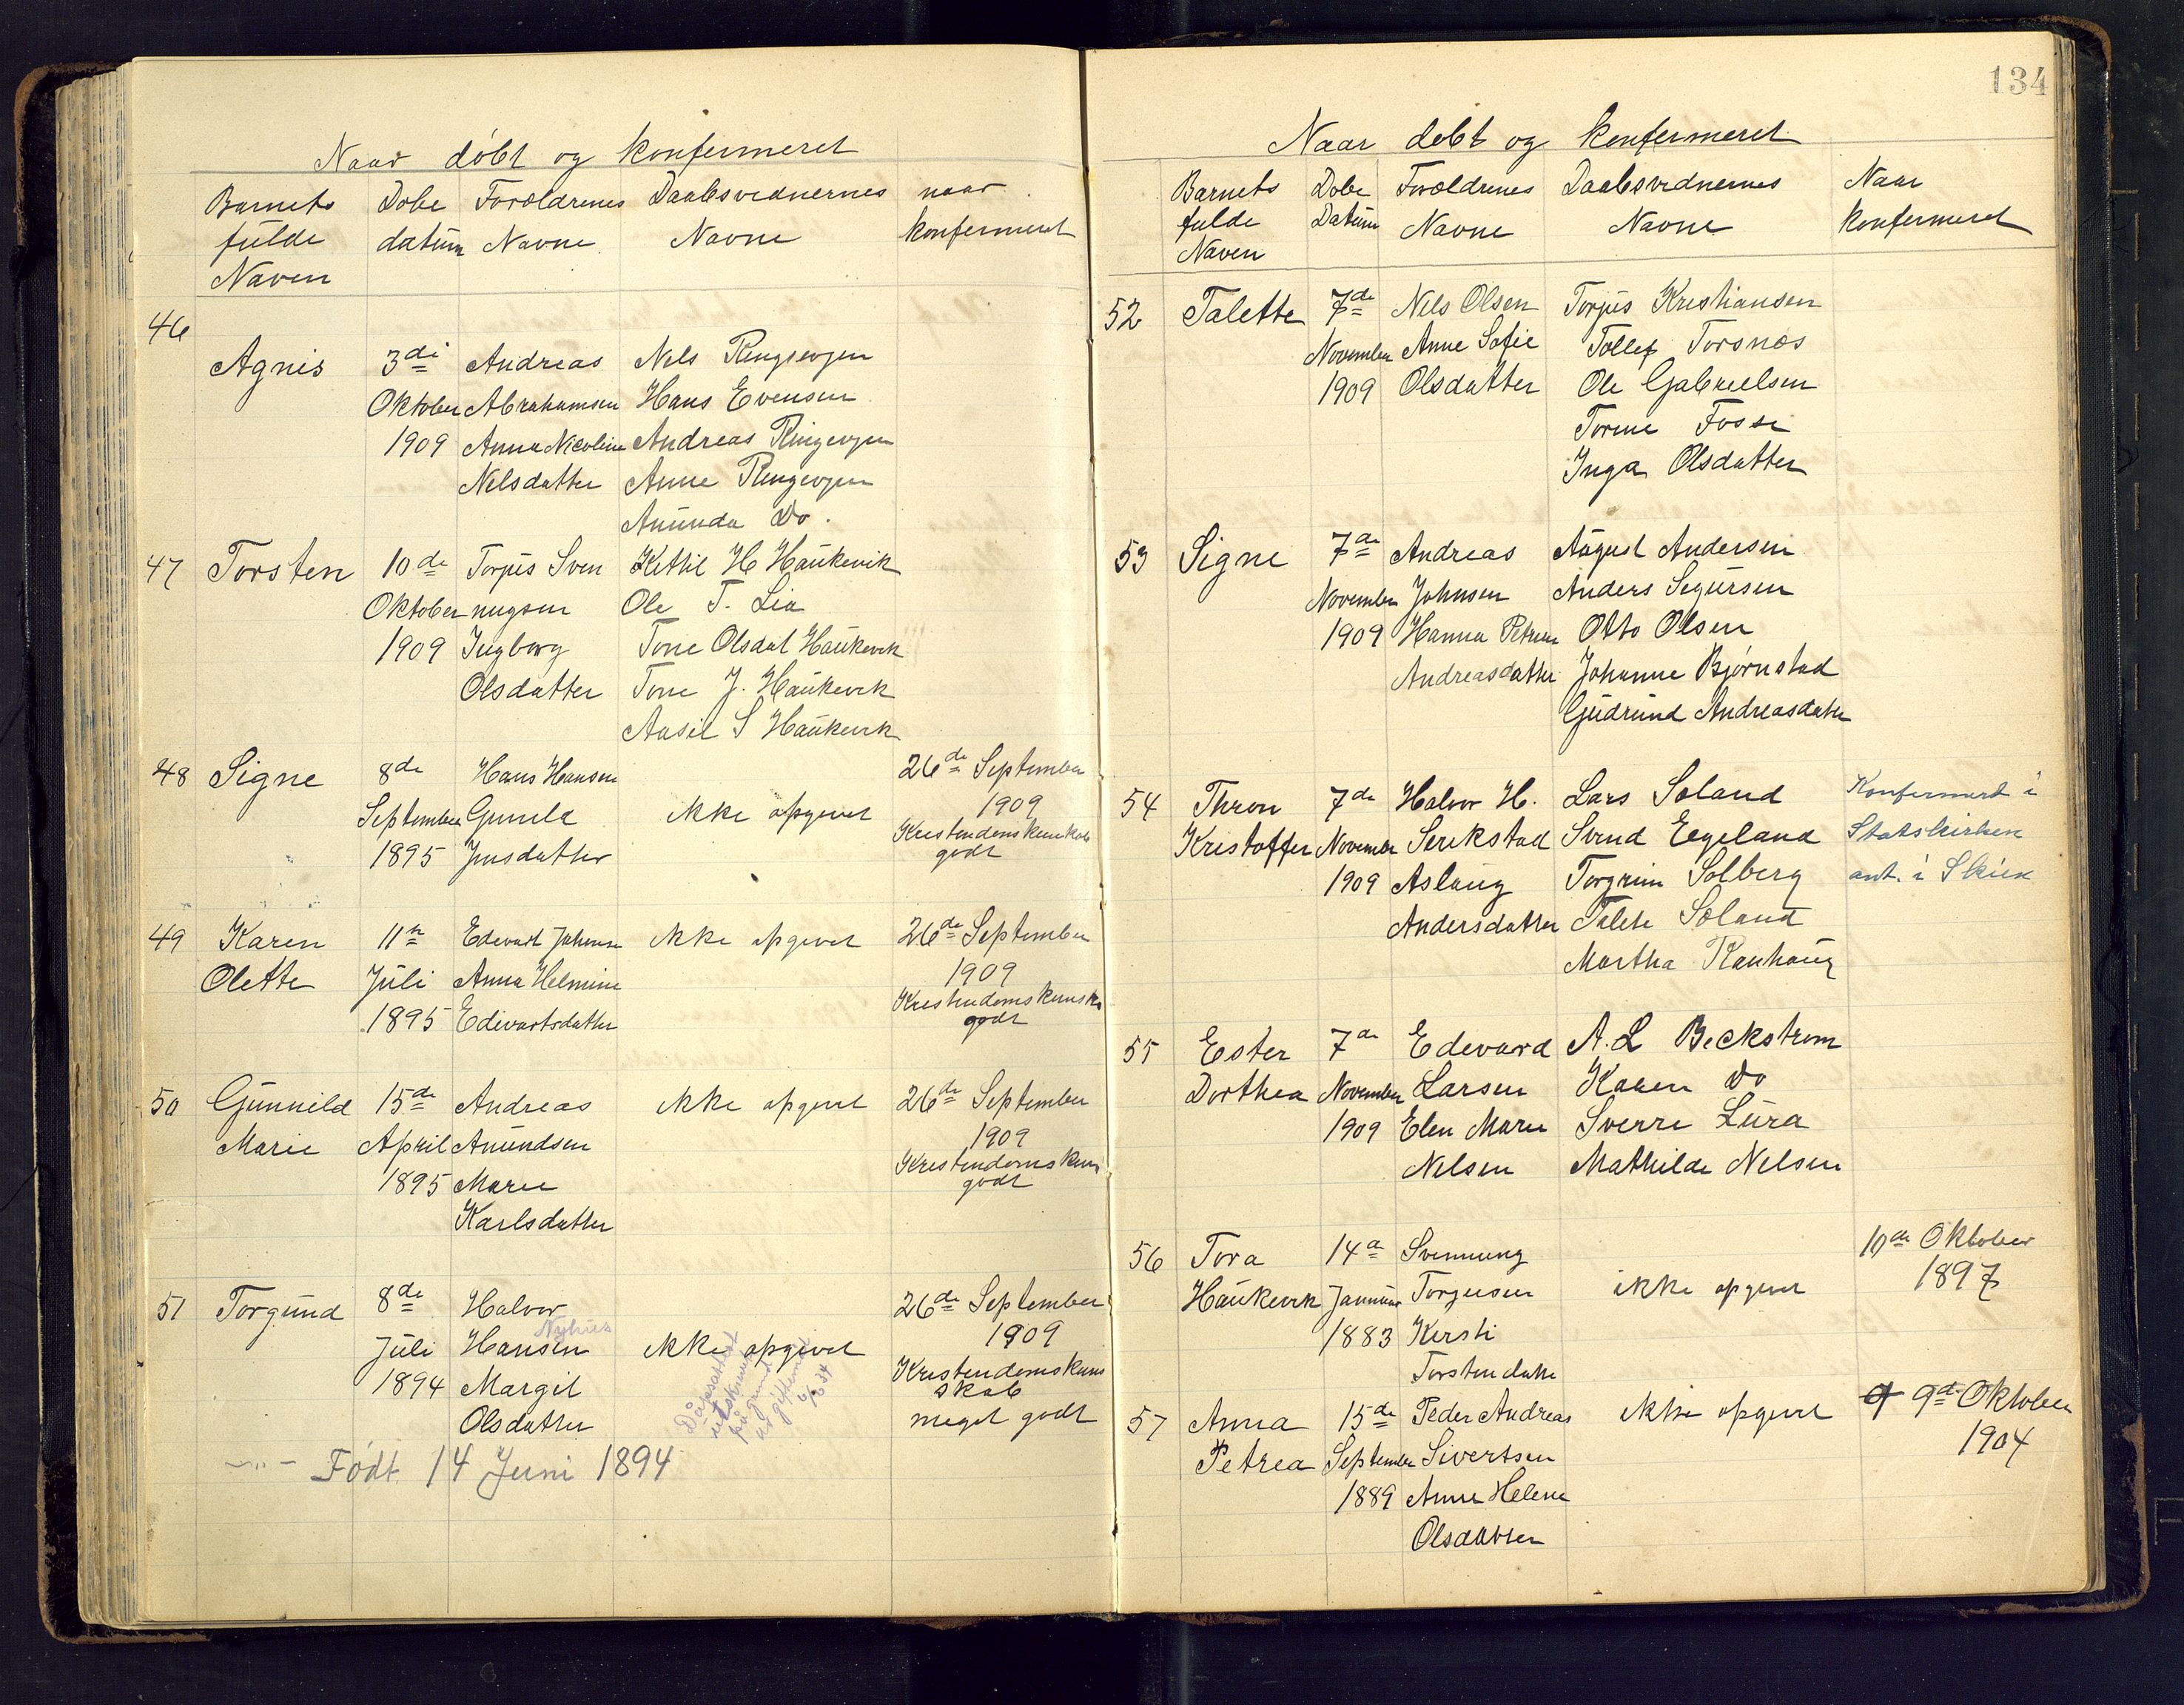 Naar döbt og konfermeret
Barnets fulde Naven | Döbe datüm | Foroldrenes Navne | Daabsvednernes Navne | naar konfermeret
46
Agnis | 3di Oktober 1909 | Andreas Abrahamsen Anna Nicoline Nelsdatter | Nels Ringsevjen
Hans Evensen
Andreas Ringevjen
Anne Ringevjen
Amünda Do.
47 Torsten | 10de Oktober 1909 | Torjüs Sven nugsen Ingborg Olsdatter | Kettil H Haükevik
Ole T. Lia
Tone Olsdat Haükevik
Tone J. Haükevik
Aasil S Haükevik
48 Signe | 8de September 1895 | Hans Hansen Gunela Jensdatter | ikke opgevet | 26de September
1909
Kristendomskunskab
godt
49 Karen Olette | 11te Jüli 1895 | Edevart Johnsen Anna Helmine Edevartsdatter | ikke opgevet | 26de September
1909
Kristendomskunska
godt
50 Günneld Marie | 15de April 1895 | Andreas Amündsen Marie Karlsdatter | ikke opgevet | 26de September
1909
Kristendomskun
godt
51 Torgünd | 8de Jüli 1894 | Halvor Hansen Nyhus Margit Olsdatter | ikke opgevet | 26de September
1909
Kristendomskuns
skab
meget godt
Dåpsattest
utskrevet
på grund
av giftemål
6/6 34
-"- Födt 14 Juni 1894
134
Naar döbt og konfermeret
Barnets fulde Naven | Döbe Datüm | Foroldrenes Navne | Daabsvednernes Navne | Naar konfermeret
52 Talette | 7de November 1909 | Nels Olsen Anne Sofie Olsdatter | Torjüs Kristiansen
Tollef Torsnes
Ole Gabrielsen
Torine Fosse
Inga Olsdatter
53 Signe | 7de November 1909 | Andreas Johnsen Hanna Petrine Andreasdatter | Aügust Andersen
Anders Segürsen
Otto Olsen
Johanne Björnstad
Güdründ Andreasdater
54 Thron Kristoffer | 7de November 1909 | Halvor H. Serikstad Aslaüg Andersdatter | Lars Soland
Svend Eegeland
Torgrim Solberg
Talete Soland
Martha Ranhaüg | Konfermert i
Statskirken
ant. i Skien
55 Ester Dorthea | 7de November 1909 | Edevard Larsen Elen Marie Nelsen | A. L Beckstrom
Karen Do
Sverre Lüra
Mathilde Nelsen
56 Tora Haükevik | 14de Januüar 1883 | Svennung Torjusen Kersti Torstendatte | ikke opgevet | 10de Oktober
1897
57 Anna Petrea | 15de September 1889 | Peder Andreas Sivertsen Anne Helene Olsdatter | ikke opgevet | 9de Oktober
1904